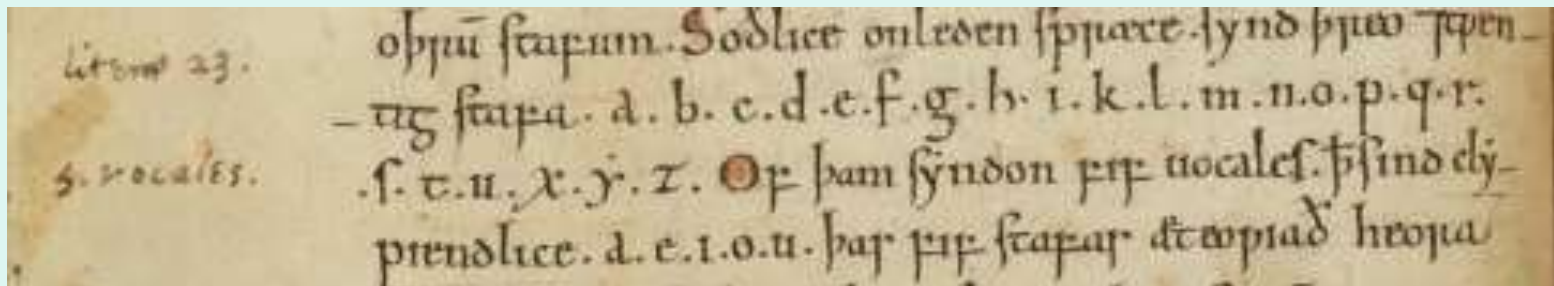 literæ 23.
oþrū stafum. Soðlice onleden spræce. synd þreo ⁊tƿen-
-tig stafa. a. b. c. d. e. f. g. h. i. k. l. m. n. o. p. q. r.
5. vocales.
.s. t. u. x. ẏ. z. Of þam sẏndon fif uocales. ꝥ sind clẏ-
piendlice. a. e. i. o. u. þas fif stafas æteoƿiað heora